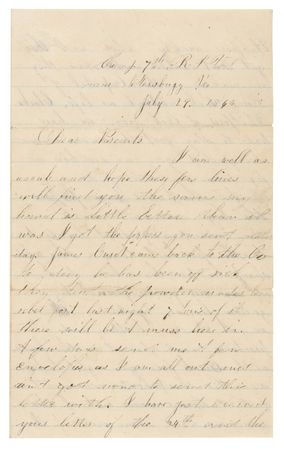 Camp 7th R. I. V.
near Petersburg Va
July 29. 1864
Dear Parents
I am well as
usual and hope these few lines
will find you the same my
hand is little better than it
was I got the papers you sent
days James came back to the Co
to day he has been off sick
they the powder in under the
fort last night 7 tons of it
there will be a muss here in
a few days send me a few
envelopes as I am all out and
aint got none to send this
letter with. I have just received
your letter of the 24th and the